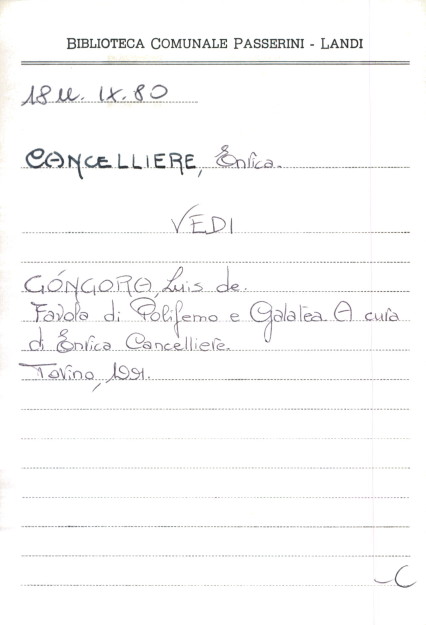 BIBLIOTECA COMUNALE PASSERINI - LANDI
18 U. IX. 80
CANCELLIERE, Enrica.
VEDI
GÓNGORA, Luis de.
Favola di Polifemo e Galatea. A cura
di Enrica Cancelliere.
Torino, 1991.
C